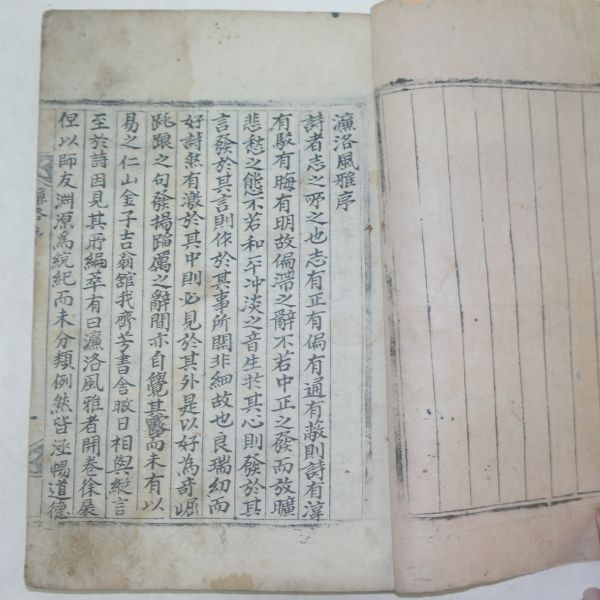 濂洛風雅序
詩者志之所之也志有正有偏有通有蔽則詩有淳
有駁有晦有明故偏滯之辭不若中正之發而放曠
悲愁之態不若和平冲淡之音生於其心則發於其
言發於其言則依於其事所關非細故也良瑞幼而
好詩然有激於其中則必見於其外是以好為奇崛
跳踉之句發揚蹈厲之辭間亦自覺其露而未有以
易之仁山金子吉翁舘我齊芳書舍暇日相與縱言
至於詩因見其所編萃有曰濂洛風雅者開卷徐展
但以師友淵源爲統紀而未分類例然皆涵暢道德
濂洛序